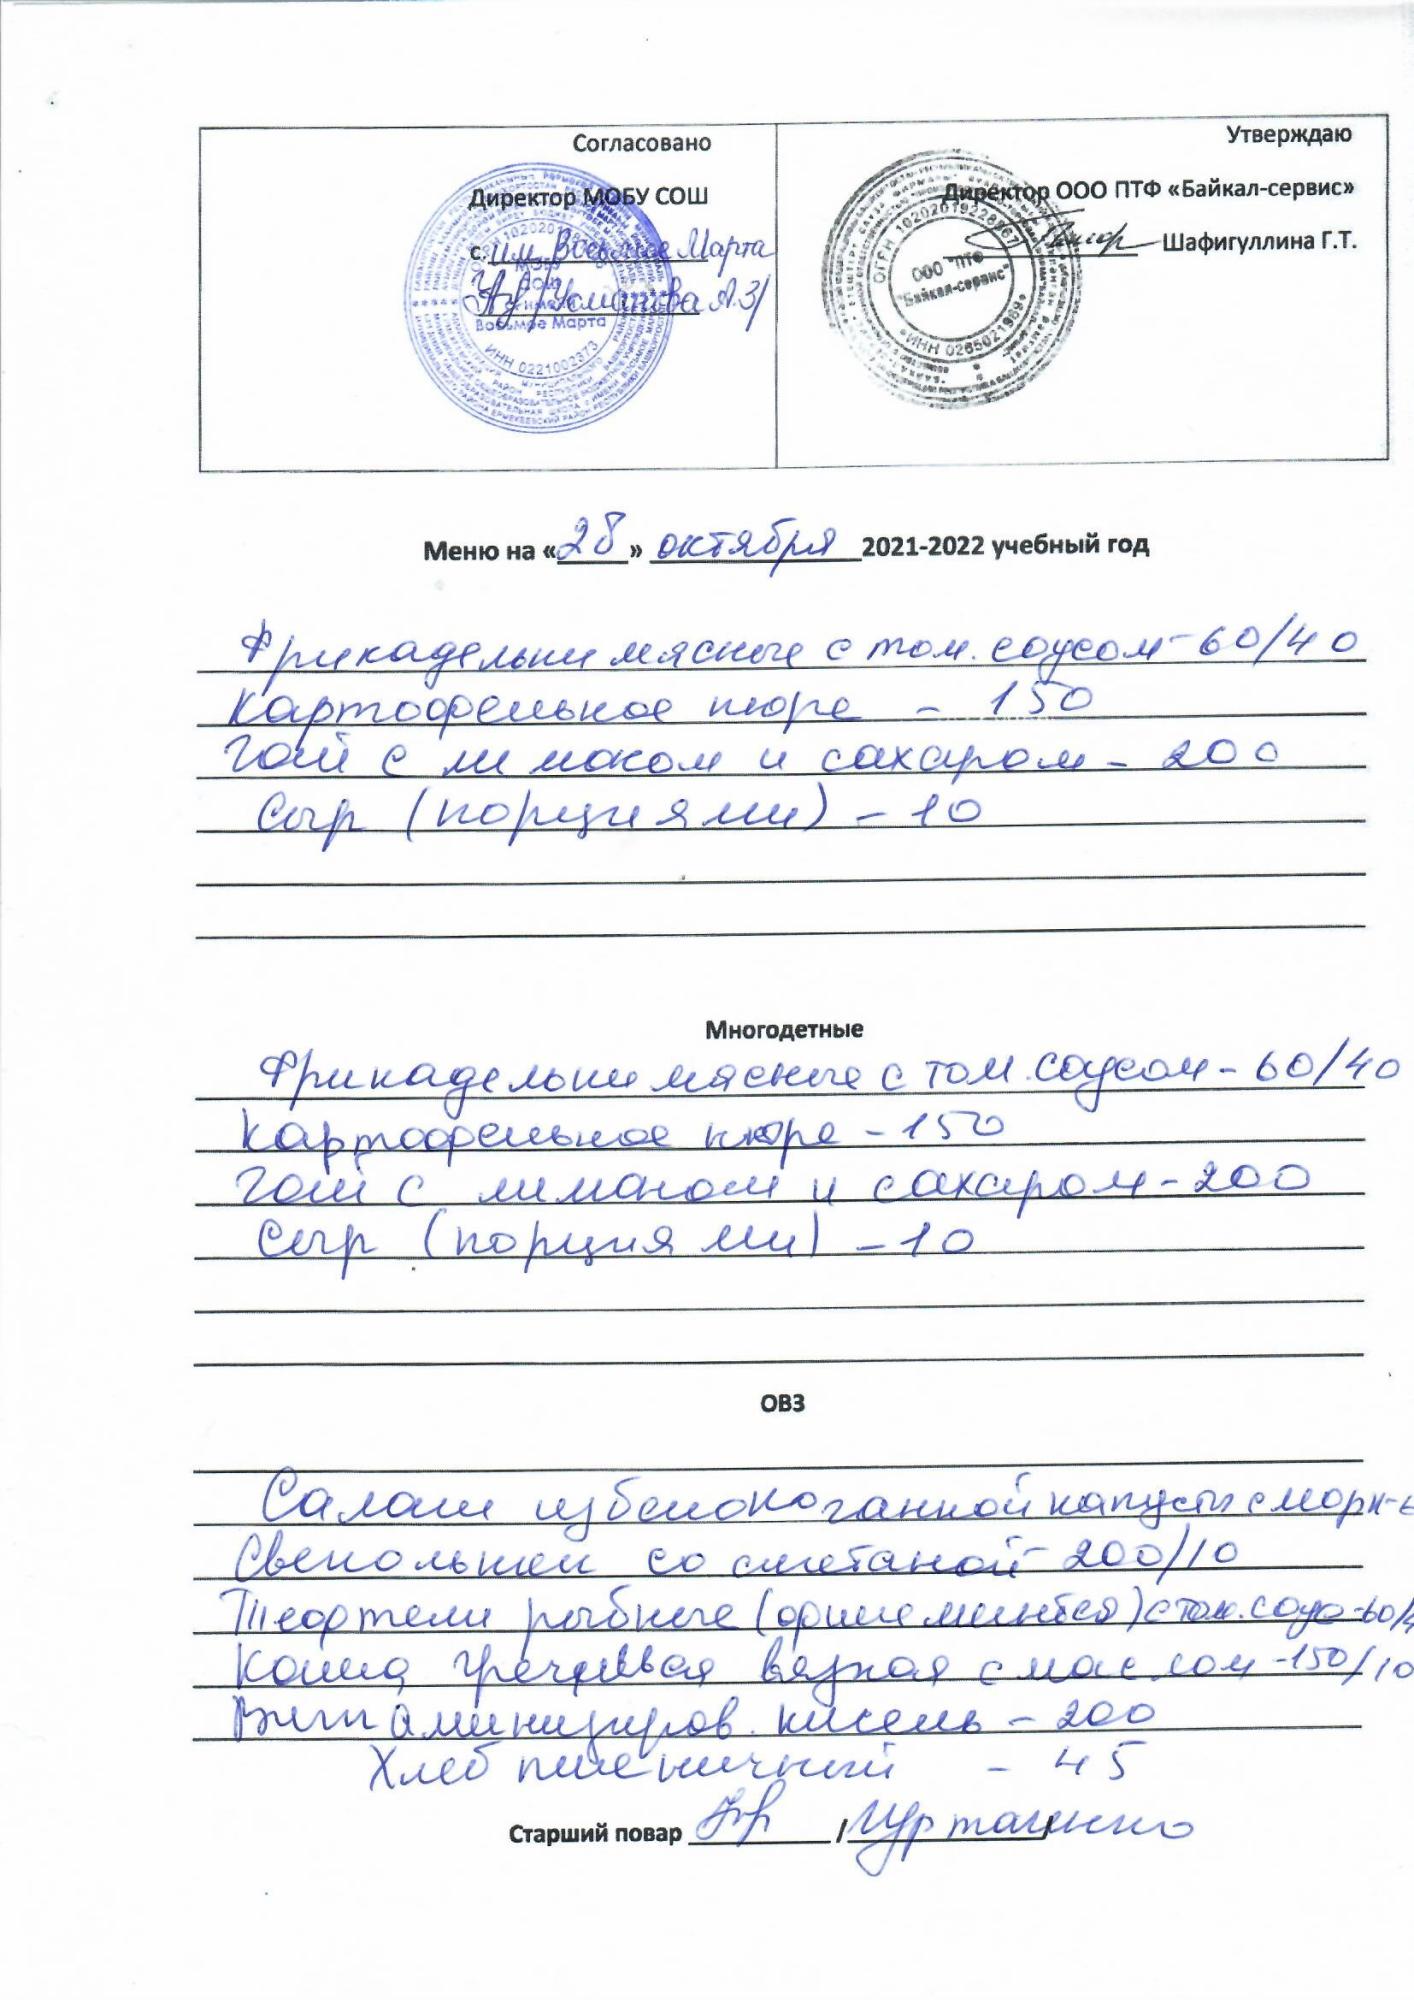 Согласовано
Директор МОБУ СОШ
с. им. Восьмое Марта
/Усманова А.З/
МОБУ
СОШ
Восьмое Марта
ИНН 0221002373
Утверждаю
Директор ООО ПТФ «Байкал-сервис»
Шафигуллина Г.Т.
ООО "ПТФ
"Байкал-сервис"
ИНН 0265021969
Меню на «28» октября 2021-2022 учебный год
Фрикадельки мясные с том. соусом - 60/40
Картофельное пюре - 150
Чай с лимоном и сахаром - 200
Сыр (порциями) - 10
Многодетные
Фрикадельки мясные с том. соусом - 60/40
Картофельное пюре - 150
Чай с лимоном и сахаром - 200
Сыр (порциями) - 10
ОВЗ
Салат из белокочанной капусты с морк -
Свекольник со сметаной - 200/10
Тефтели рыбные с том. соус - 60/4
Каша гречневая вязкая с маслом - 150/10
Витаминизиров. кисель - 200
Хлеб пшеничный - 45
Старший повар / /